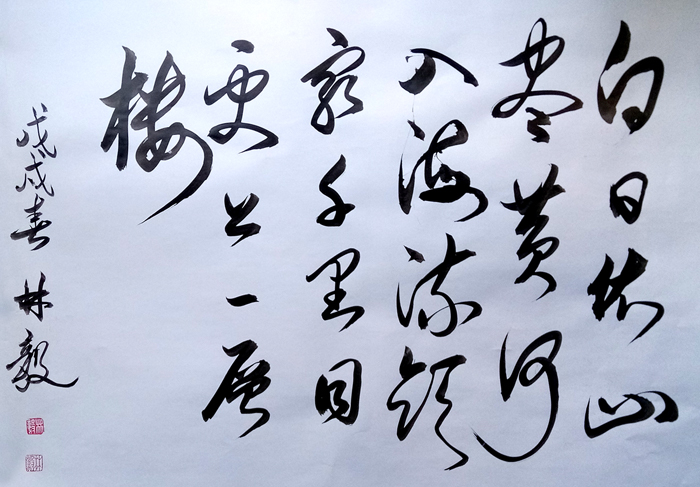 白日依山
尽黄河
入海流欲
穷千里目
更上一层
楼
戊戌春 林毅